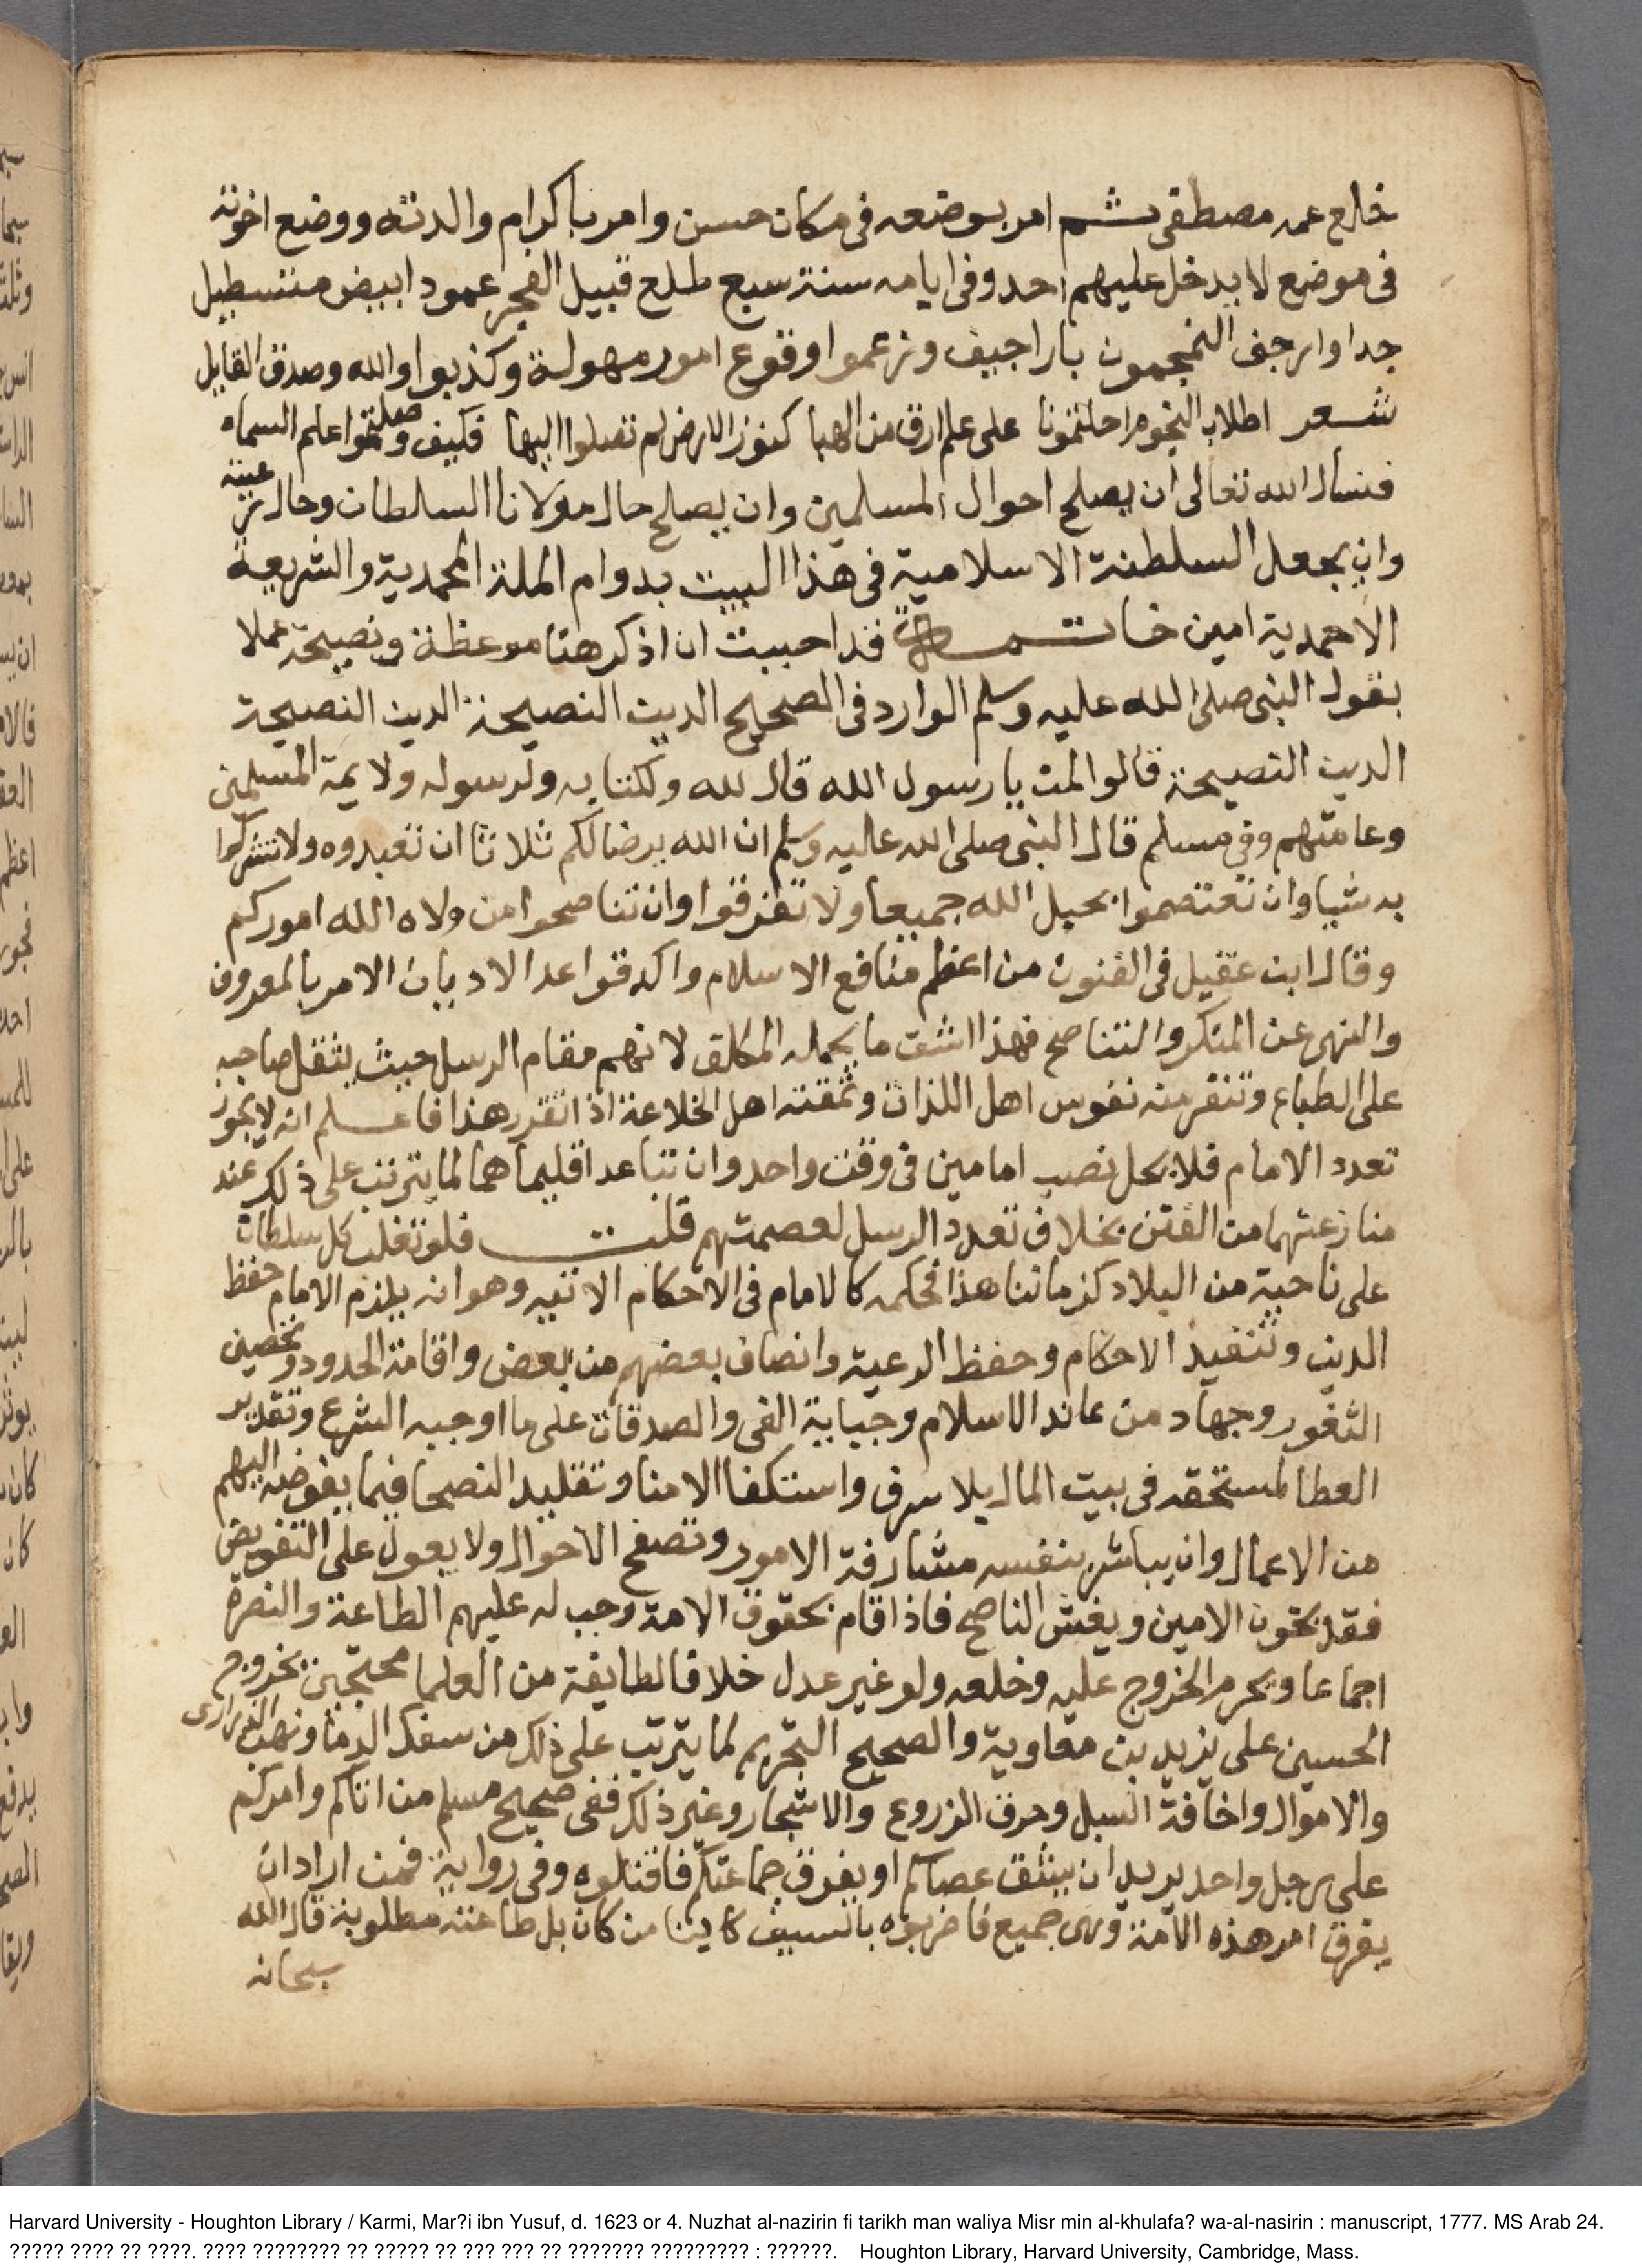 خلع عمه مصطفى ثم امر بوضعه فى مكان حسن وامر باكرام والدته ووضع اخوته
فى موضع لا يدخل عليهم احد وفى ايامه سنة سبع طلع قبيل الفجر عمود ابيض مستطيل
جدا وارجف المنجمون باراجيف وزعموا وقوع امور مهولة وكذبوا والله وصدق القايل
شعر اطلاب النجوم احلتمونا على علم ارق من الهبا كنوز الارض لم تصلوا اليها فكيف وصلتموا علم السماء
فنسأل الله تعالى ان يصلح احوال المسلمين وان يصلح حال مولانا السلطان وحال رعيته
وان يجعل السلطنة الاسلامية فى هذا البيت بدوام الملة المحمدية والشريعة
الاحمدية امين خاتمة قد احببت ان اذكر هنا موعظة ونصيحة عملا
بقول النبى صلى الله عليه وسلم الوارد فى الصحيح الدين النصيحة الدين النصيحة
الدين النصيحة قالوا لمن يا رسول الله قال لله ولكتابه ولرسوله ولايمة المسلمين
وعامتهم وفى مسلم قال النبى صلى الله عليه وسلم ان الله يرضا لكم ثلاثا ان تعبدوه ولا تشركوا
به شيا وان تعتصموا بحبل الله جميعا ولا تفرقوا وان تناصحوا من ولاه الله اموركم
وقال ابن عقيل فى الفنون من اعظم منافع الاسلام واكد قواعد الاديان الامر بالمعروف
والنهى عن المنكر والتناصح فهذا اشق ما يحمله المكلف لانهم مقام الرسل حيث يثقل صاحبه
على الطباع وتنفر منه نفوس اهل اللذات وتمقته اهل الخلاعة اذا تقرر هذا فاعلم انه لا يجوز
تعدد الامام فلا يحل نصب امامين فى وقت واحد وان تباعد اقليماهما لما يترتب على ذلك عند
منازعتهما من الفتن بخلاف تعدد الرسل لعصمتهم قلت فلو تغلب كل سلطان
على ناحية من البلاد كزماننا هذا فحكمه كالامام فى الاحكام الاتيه وهو انه يلزم الامام حفظ
الدين وتنفيذ الاحكام وحفظ الرعية وانصاف بعضهم من بعض واقامة الحدود وتحصين
الثغور وجهاد من عاند الاسلام وجباية الفى والصدقات على ما اوجبه الشرع وتقدير
العطا لمستحقه فى بيت المال بلا سرف واستكفا الامنا وتقليد النصحا فيما يفوضه اليهم
من الاعمال وان يباشر بنفسه مشارفة الامور وتصفح الاحوال ولا يعول على التفويض
فقد يخون الامين ويغش الناصح فاذا قام بحقوق الامة وجب له عليهم الطاعة والنصرة
اجماعا ويحرم الخروج عليه وخلعه ولو غير عدل خلافا لطايفة من العلما محتجين بخروج
الحسين على يزيد بن معاوية والصحيح التحريم لما يترتب على ذلك من سفك الدما ونهب الذرارى
والاموال واخافة السبل وحرق الزروع والاشجار وغير ذلك ففى صحيح مسلم من اتاكم وامركم
على رجل واحد يريد ان يشق عصاكم او يفرق جماعتكم فاقتلوه وفى رواية فمن اراد ان
يفرق امر هذه الامة وهى جميع فاضربوه بالسيف كاينا من كان بل طاعته مطلوبة قال الله
سبحانه
Harvard University - Houghton Library / Karmi, Mar?i ibn Yusuf, d. 1623 or 4. Nuzhat al-nazirin fi tarikh man waliya Misr min al-khulafa? wa-al-nasirin : manuscript, 1777. MS Arab 24.
????? ???? ?? ????. ???? ???????? ?? ????? ?? ??? ??? ?? ??????? ????????? : ??????. Houghton Library, Harvard University, Cambridge, Mass.